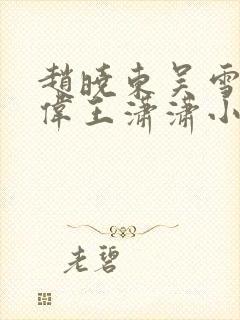 趙曉東吳雪
偉王瀟瀟小
老碧